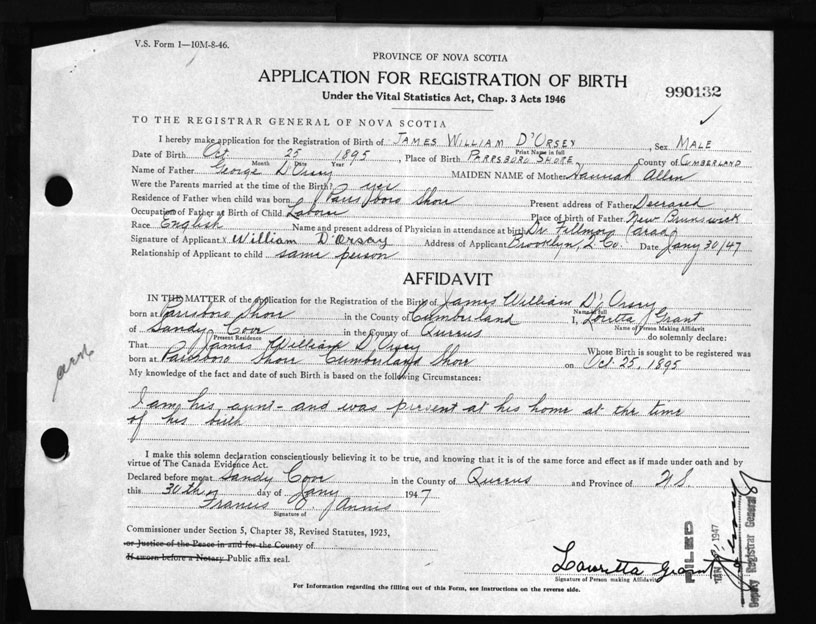 V.S. Form 1—10M-8-46.
PROVINCE OF NOVA SCOTIA
APPLICATION FOR REGISTRATION OF BIRTH
Under the Vital Statistics Act, Chap. 3 Acts 1946
990132
TO THE REGISTRAR GENERAL OF NOVA SCOTIA
I hereby make application for the Registration of Birth of JAMES WILLIAM D'ORSEY, Sex MALE
Print Name in full
Date of Birth Oct 25 1895, Place of Birth PARRSBORO SHORE, County of CUMBERLAND
Month Date Year
Name of Father George D'Orsey MAIDEN NAME of Mother Hannah Allen
Were the Parents married at the time of the Birth? yes
Residence of Father when child was born Parrsboro Shore Present address of Father Deceased
Occupation of Father at Birth of Child Laborer Place of birth of Father New Brunswick
Race English Name and present address of Physician in attendance at birth Dr Fillmore
Signature of Applicant x William D'Orsay Address of Applicant Brooklyn, Q. Co. Date Jany 30/47
Relationship of Applicant to child same person
AFFIDAVIT
IN THE MATTER of the application for the Registration of the Birth of James William D'Orsey
Name in full
born at Parrsboro Shore in the County of Cumberland I, Loretta Grant
Name of Person Making Affidavit
of Sandy Cove in the County of Queens do solemnly declare:
Present Residence
That James William D'Orsey Whose Birth is sought to be registered was
born at Parrsboro Shore Cumberland Shore on Oct. 25, 1895
My knowledge of the fact and date of such Birth is based on the following Circumstances:
I am his aunt - and was present at his home at the time
of his birth
I make this solemn declaration conscientiously believing it to be true, and knowing that it is of the same force and effect as if made under oath and by
virtue of The Canada Evidence Act.
Declared before me at Sandy Cove in the County of Queens and Province of N.S.
this 30th day of Jany 1947
Francis
Signature of
Commissioner under Section 5, Chapter 38, Revised Statutes, 1923,
or Justice of the Peace in and for the County of
If sworn before a Notary Public affix seal.
Lauretta Grant
Signature of Person making Affidavit
For Information regarding the filling out of this Form, see instructions on the reverse side.
FILED
1947
Deputy Registrar General